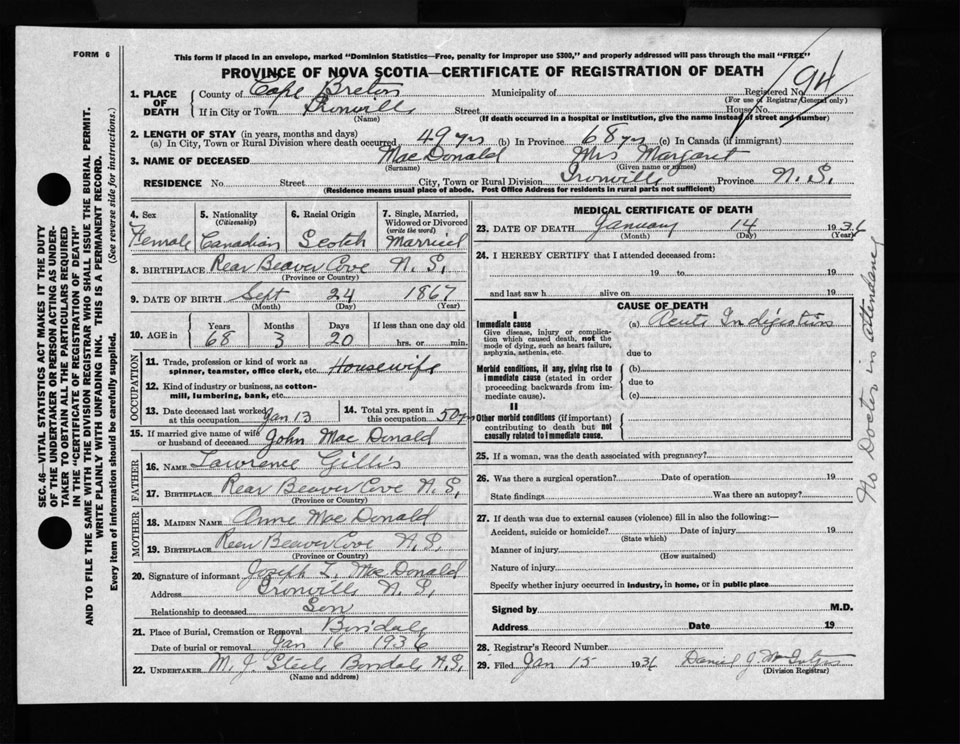 FORM 6
This form if placed in an envelope, marked "Dominion Statistics—Free, penalty for improper use $300," and properly addressed will pass through the mail "FREE"
PROVINCE OF NOVA SCOTIA—CERTIFICATE OF REGISTRATION OF DEATH
194
1. PLACE OF DEATH
County of Cape Breton Municipality of Registered No.
(For use of Registrar General only)
If in City or Town Ironville Street House No.
(Name) (If death occurred in a hospital or institution, give the name instead of street and number)
2. LENGTH OF STAY (in years, months and days)
(a) In City, Town or Rural Division where death occurred 49 yrs (b) In Province 68 yrs (c) In Canada (if immigrant)
3. NAME OF DECEASED MacDonald Mrs Margaret
(Surname) (Given name or names)
RESIDENCE No Street City, Town or Rural Division Ironville Province N. S.
(Residence means usual place of abode. Post Office Address for residents in rural parts not sufficient)
4. Sex Female
5. Nationality (Citizenship) Canadian
6. Racial Origin Scotch
7. Single, Married, Widowed or Divorced (write the word) Married
8. BIRTHPLACE Rear Beaver Cove N. S.
(Province or Country)
9. DATE OF BIRTH Sept 24 1867
(Month) (Day) (Year)
10. AGE in Years 68 Months 3 Days 20 If less than one day old hrs. or min.
OCCUPATION
11. Trade, profession or kind of work as spinner, teamster, office clerk, etc. Housewife
12. Kind of industry or business, as cotton-mill, lumbering, bank, etc.
13. Date deceased last worked at this occupation Jan 13
14. Total yrs. spent in this occupation 50 yrs
15. If married give name of wife or husband of deceased John MacDonald
FATHER
16. NAME Lawrence Gillis
17. BIRTHPLACE Rear Beaver Cove N. S.
(Province or Country)
MOTHER
18. MAIDEN NAME Anne MacDonald
19. BIRTHPLACE Rear Beaver Cove N. S.
(Province or Country)
20. Signature of informant Joseph L. MacDonald
Address Ironville N. S.
Relationship to deceased Son
21. Place of Burial, Cremation or Removal Boisdale
Date of burial or removal Jan 16 1936
22. UNDERTAKER M. J. Steele Boisdale N. S.
(Name and address)
MEDICAL CERTIFICATE OF DEATH
23. DATE OF DEATH January 14 1936
(Month) (Day) (Year)
24. I HEREBY CERTIFY that I attended deceased from:
19 to 19
and last saw h alive on 19
CAUSE OF DEATH
I
Immediate cause
Give disease, injury or complication which caused death, not the mode of dying, such as heart failure, asphyxia, asthenia, etc.
(a) Acute Indigestion
due to
Morbid conditions, if any, giving rise to immediate cause (stated in order proceeding backwards from immediate cause).
(b)
due to
(c)
II
Other morbid conditions (if important) contributing to death but not causally related to immediate cause.
25. If a woman, was the death associated with pregnancy?
26. Was there a surgical operation? Date of operation 19
State findings Was there an autopsy?
27. If death was due to external causes (violence) fill in also the following:—
Accident, suicide or homicide? Date of injury 19
(State which)
Manner of injury
(How sustained)
Nature of injury
Specify whether injury occurred in industry, in home, or in public place
Signed by M.D.
Address Date 19
28. Registrar's Record Number
29. Filed Jan 15 1936 Daniel J.
(Division Registrar)
No Doctor in attendance
SEC. 46—VITAL STATISTICS ACT MAKES IT THE DUTY
OF THE UNDERTAKER OR PERSON ACTING AS UNDER-
TAKER TO OBTAIN ALL THE PARTICULARS REQUIRED
IN THE "CERTIFICATE OF REGISTRATION OF DEATH"
AND TO FILE THE SAME WITH THE DIVISION REGISTRAR WHO SHALL ISSUE THE BURIAL PERMIT.
WRITE PLAINLY WITH UNFADING INK. THIS IS A PERMANENT RECORD.
Every item of information should be carefully supplied. (See reverse side for instructions.)